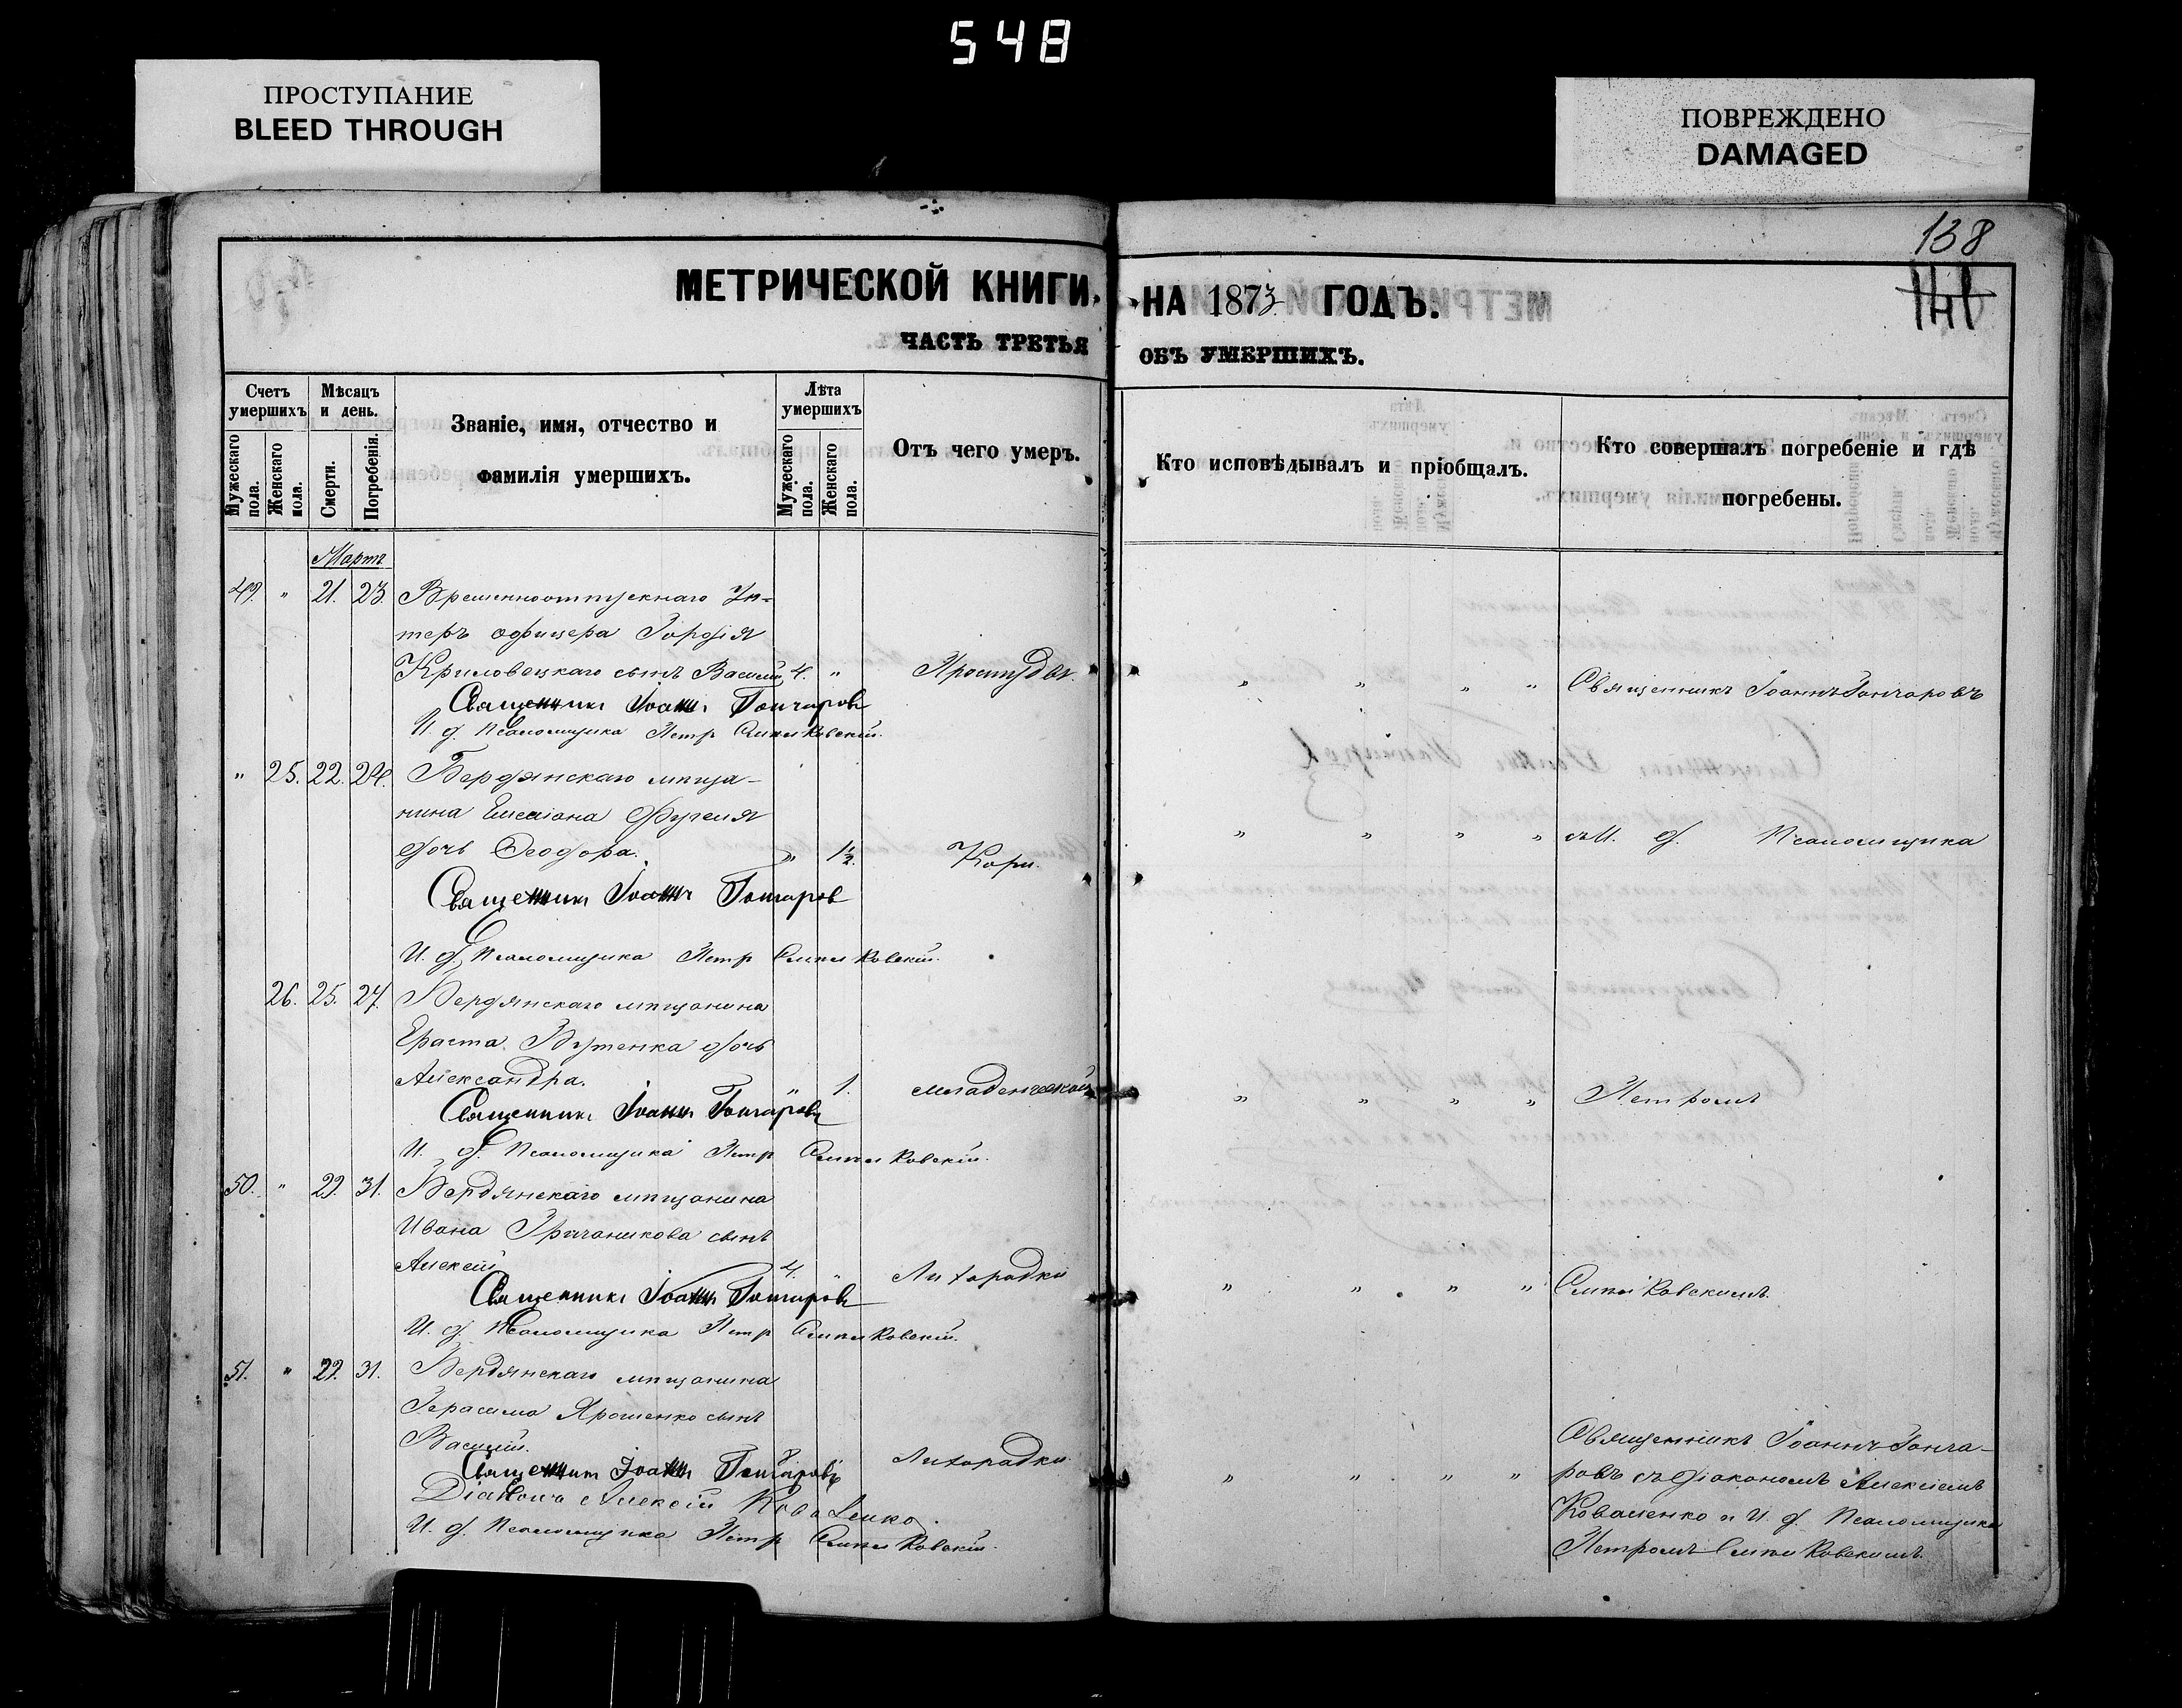 548
ПРОСТУПАНИЕ
BLEED THROUGH
ПОВРЕЖДЕНО
DAMAGED
138
МЕТРИЧЕСКОЙ КНИГИ, НА 1873 ГОДЪ.
ЧАСТЬ ТРЕТЬЯ ОБЪ УМЕРШИХЪ.
Счетъ умершихъ
Мужескаго пола.
Женскаго пола.
Мѣсяцъ и день.
Смерти.
Погребенія.
Званіе, имя, отчество и
фамилія умершихъ.
Лѣта умершихъ
Мужескаго пола.
Женскаго пола.
Отъ чего умеръ.
Кто исповѣдывалъ и пріобщалъ.
Кто совершалъ погребеніе и гдѣ
погребены.
Мартъ
49. " 21. 23. Временноотпускнаго Ун-
теръ офицера Гордія
Криловецкаго сынъ Василій 4. " Простуды. " " " " Священникъ Іоаннъ Гончаровъ
Священникъ Іоаннъ Гончаровъ
И. д. Псаломщика Петр
" 25. 22. 24. Бердянскаго мѣща-
нина
дочь Ѳеодора. " 1½. Кори. " " " " съ И. д. Псаломщика
Священникъ Іоаннъ Гончаров
И. д. Псаломщика Петр
26. 25. 27. Бердянскаго мѣщанина
Ераста дочь
Александра. " 1. младенческой " " " " Петромъ
Священникъ Іоаннъ Гончаровъ
И. д. Псаломщика Петр
50. " 29. 31. Бердянскаго мѣщанина
Ивана сынъ
Алексѣй 4. Лихорадки " " " "
Священникъ Іоаннъ Гончаровъ
И. д. Псаломщика Петр
51. " 29. 31. Бердянскаго мѣщанина
Герасима Ярошенко сынъ
Василій. Лихорадки. " " " " Священникъ Іоаннъ Гонча-
Священникъ Іоаннъ Гончаровъ ровъ съ діакономъ Алексіемъ
Діаконъ Алексій Коваленко. Коваленко и И. д. Псаломщика
И. д. Псаломщика Петр Петромъ